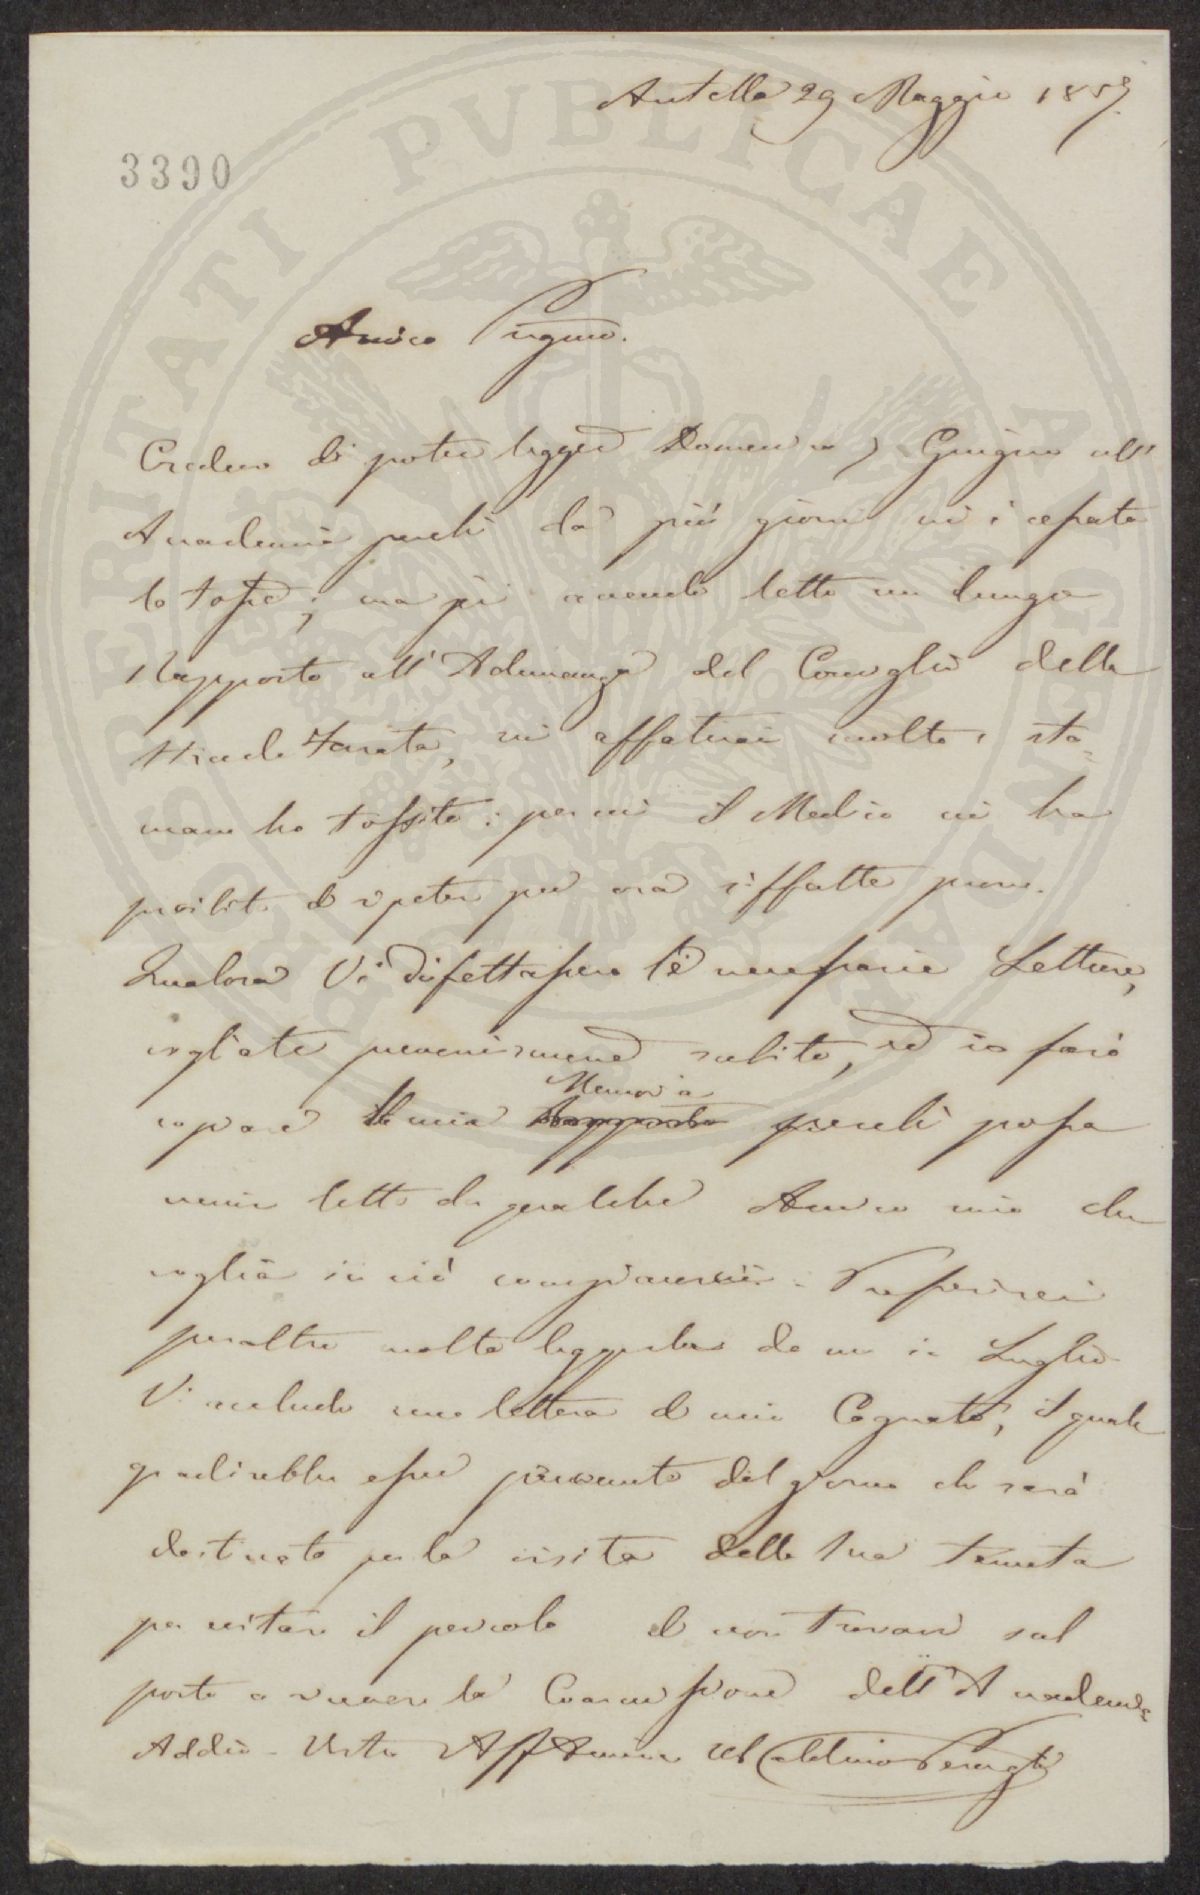 Antella 29 Maggio 1857.
3390
Amico Pregmo.
Credevo di poter leggere Domenica 7 Giugno all'
Accademia perché da più giorni mi è cessata
la tosse; ma jeri avendo letto un lungo
Rapporto all'Adunanza del Consiglio della
Strada Ferrata, mi affaticai molto e sta-
mane ho tossito: per cui il Medico mi ha
proibito di ripetere per ora siffatte prove.
Qualora Vi difettassero le necessarie Letture,
vogliate prevenirmene subito, ed io farò
copiare la mia Memoria perché possa
venir letta da qualche Amico mio che
voglia in ciò compiacermi. Preferirei
peraltro molto leggerla da me in Luglio.
Vi accludo una lettera di mio Cognato, il quale
gradirebbe esser prevenuto del giorno che sarà
destinato per la visita della sua tenuta
per evitare il pericolo di non trovarsi sul
posto a ricevere la Commissione dell'Accademia
Addio - Vostro Aff Amico Ubaldino Peruzzi